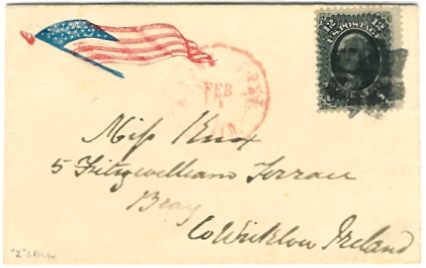 12 12
U.S. POSTAGE
FEB
Miss Knox
5 Fitzwilliam Terrace
Bray
Co Wicklow Ireland
"Z" GRILL